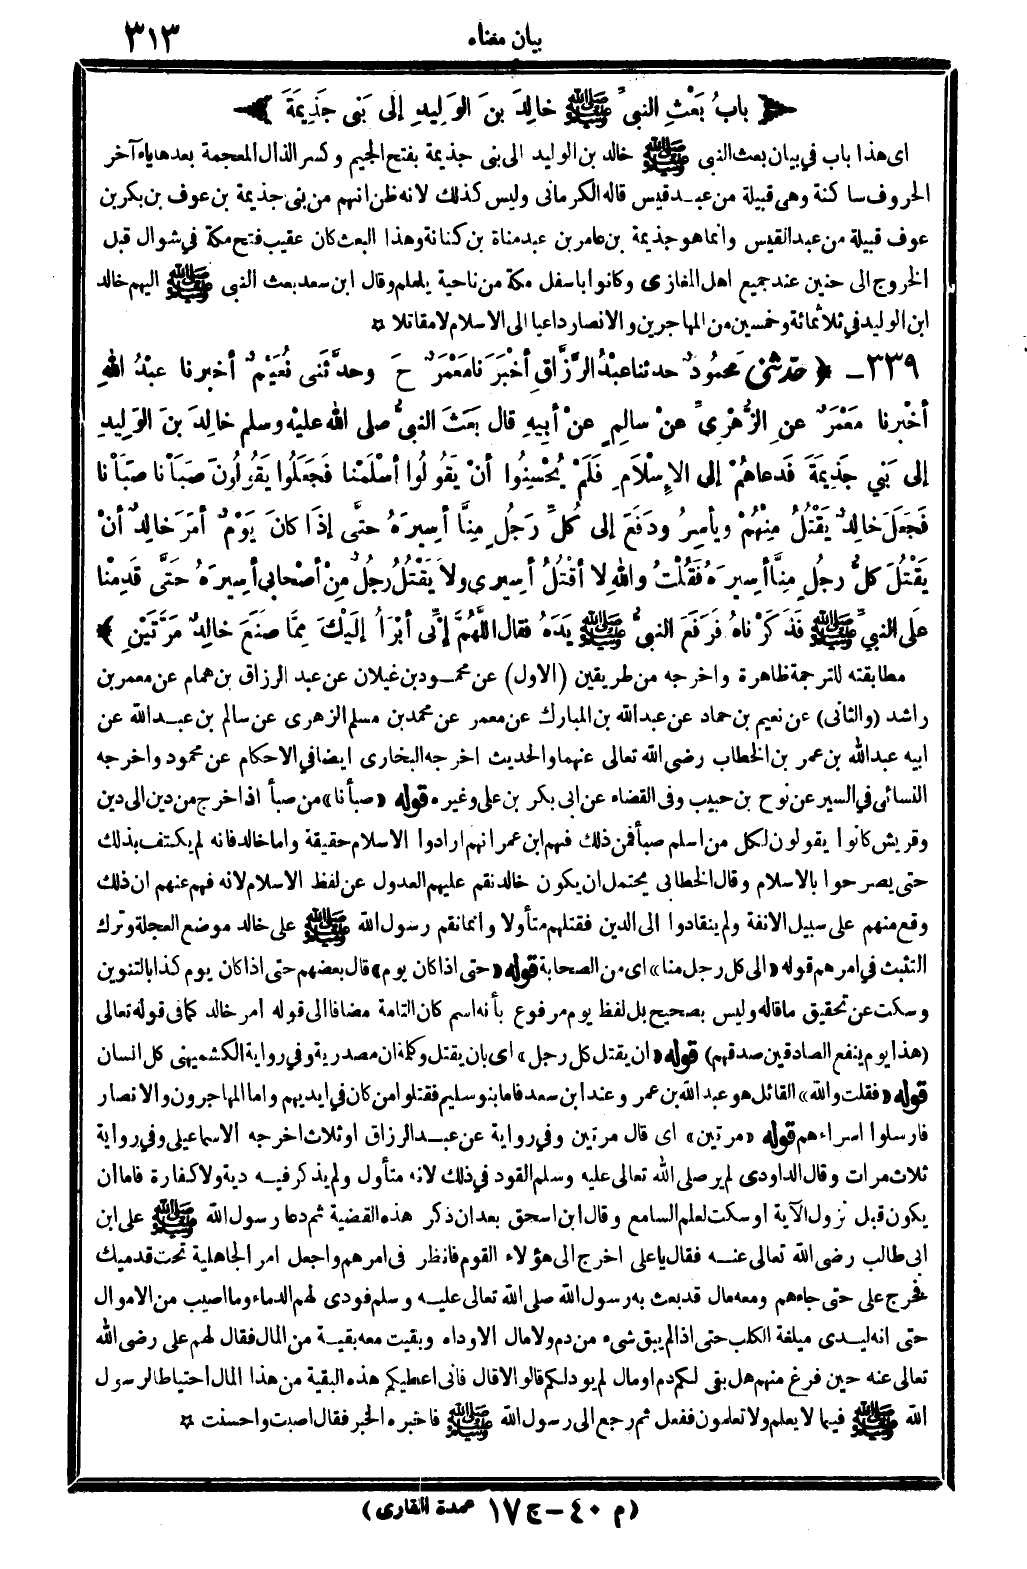 بيان معناه ٣١٣
﴿ بابُ بَعْثِ النبيِّ ﷺ خالِدَ بنَ الوَلِيدِ إلى بَنِي جَذِيمَةَ ﴾
اى هذا باب في بيان بعث النبى ﷺ خالد بن الوليد الى بنى جذيمة بفتح الجيم وكسر الذال المعجمة بعدها ياء آخر
الحروف ساكنة وهى قبيلة من عبد قيس قاله الكرمانى وليس كذلك لانه ظن انهم من بنى جذيمة بن عوف بن بكر بن
عوف قبيلة من عبد القيس وانما هو جذيمة بن عامر بن عبد مناة بن كنانة وهذا البعث كان عقيب فتح مكة في شوال قبل
الخروج الى حنين عند جميع اهل المغازى وكانوا باسفل مكة من ناحية يلملم وقال ابن سعد بعث النبى ﷺ اليهم خالد
ابن الوليد في ثلاثمائة وخمسين من المهاجرين والانصار داعيا الى الاسلام لا مقاتلا ☆
٣٣٩ - ﴿ حَدَّثَنِي مَحْمُودٌ حدثنا عبْدُ الرَّزَّاقِ أخْبَرَنا مَعْمَرٌ حَ وحدَّثَنى نُعَيْمٌ أخبرنا عبْدُ اللهِ
أخْبرنا مَعْمَرٌ عنِ الزُّهْرِىِّ عنْ سالِمٍ عنْ أبِيهِ قال بَعَثَ النبىُّ صلى الله عليْه وسلم خالِدَ بنَ الوَلِيدِ
إلى بَنِي جَذِيمَةَ فَدعاهُمْ إلى الإِسْلاَمِ فَلَمْ يُحْسِنُوا أنْ يَقُولُوا أسْلَمْنا فَجَعَلُوا يَقُولُونَ صَبَأنا صَبَأنا
فَجَعَلَ خالِدٌ يَقْتُلُ مِنْهُمْ ويأسِرُ ودَفَعَ إلى كُلِّ رَجُلٍ مِنَّا أسِيرَهُ حتَّى إذَا كانَ يَوْمٌ أمَرَ خالِدٌ أنْ
يَقْتُلَ كلُّ رجُلٍ مِنَّا أسِيرَهُ فَقُلْتُ واللهِ لا أقْتُلُ أسِيرِى ولاَ يَقْتُلُ رجُلٌ مِنْ أصْحابى أسِيرَهُ حتَّى قَدِمْنا
عَلَى النبيِّ ﷺ فَذَكَرْناهُ فرَفَعَ النبىُّ ﷺ يَدَهُ فقال اللَّهُمَّ إنِّى أبْرَأُ إلَيْكَ مِمَّا صَنَعَ خالِدٌ مَرَّتَيْنِ ﴾
مطابقته للترجمة ظاهرة واخرجه من طريقين (الاول) عن محمود بن غيلان عن عبد الرزاق بن همام عن معمر بن
راشد (والثانى) عن نعيم بن حماد عن عبدالله بن المبارك عن معمر عن محمد بن مسلم الزهرى عن سالم بن عبد الله عن
ابيه عبدالله بن عمر بن الخطاب رضى الله تعالى عنهما والحديث اخرجه البخارى ايضا في الاحكام عن محمود واخرجه
النسائى في السير عن نوح بن حبيب وفى القضاء عن ابى بكر بن على وغيره قوله «صبأنا» من صبأ اذا خرج من دين الى دين
وقريش كانوا يقولون لكل من اسلم صبأ فمن ذلك فهم ابن عمر انهم ارادوا الاسلام حقيقة واما خالد فانه لم يكتف بذلك
حتى يصرحوا بالاسلام وقال الخطابى يحتمل ان يكون خالد نقم عليهم العدول عن لفظ الاسلام لانه فهم عنهم ان ذلك
وقع منهم على سبيل الانفة ولم ينقادوا الى الدين فقتلهم متأولا وانما نقم رسول الله ﷺ على خالد موضع العجلة وترك
التثبت في امرهم قوله «الى كل رجل منا» اى من الصحابة قوله «حتى اذا كان يوم» قال بعضهم حتى اذا كان يوم كذا بالتنوين
وسكت عن تحقيق ما قاله وليس بصحيح بل لفظ يوم مرفوع بأنه اسم كان التامة مضافا الى قوله امر خالد كما فى قوله تعالى
(هذا يوم ينفع الصادقين صدقهم) قوله «ان يقتل كل رجل» اى بان يقتل وكلمة ان مصدرية وفي رواية الكشميهنى كل انسان
قوله «فقلت والله» القائل هو عبد الله بن عمر وعند ابن سعد فاما بنو سليم فقتلوا من كان في ايديهم واما المهاجرون والانصار
فارسلوا اسراءهم قوله «مرتين» اى قال مرتين وفي رواية عن عبد الرزاق او ثلاث اخرجه الاسماعيلى وفي رواية
ثلاث مرات وقال الداودى لم ير صلى الله تعالى عليه وسلم القود في ذلك لانه متأول ولم يذكر فيه دية ولا كفارة فاما ان
يكون قبل نزول الآية او سكت لعلم السامع وقال ابن اسحق بعد ان ذكر هذه القضية ثم دعا رسول الله ﷺ على ابن
ابى طالب رضى الله تعالى عنه فقال يا على اخرج الى هؤلاء القوم فانظر فى امرهم واجعل امر الجاهلية تحت قدميك
فخرج على حتى جاءهم ومعه مال قد بعث به رسول الله صلى الله تعالى عليه وسلم فودى لهم الدماء وما اصيب من الاموال
حتى انه ليدى ميلغة الكلب حتى اذا لم يبق شىء من دم ولا مال الاوداه وبقيت معه بقية من المال فقال لهم على رضى الله
تعالى عنه حين فرغ منهم هل بقى لكم دم او مال لم يود لكم قالوا لا قال فانى اعطيكم هذه البقية من هذا المال احتياطا لرسول
الله ﷺ فيما لا يعلم ولا تعلمون ففعل ثم رجع الى رسول الله ﷺ فاخبره الخبر فقال اصبت واحسنت ☆
(م ٤٠ - ج ١٧ عمدة القارى)